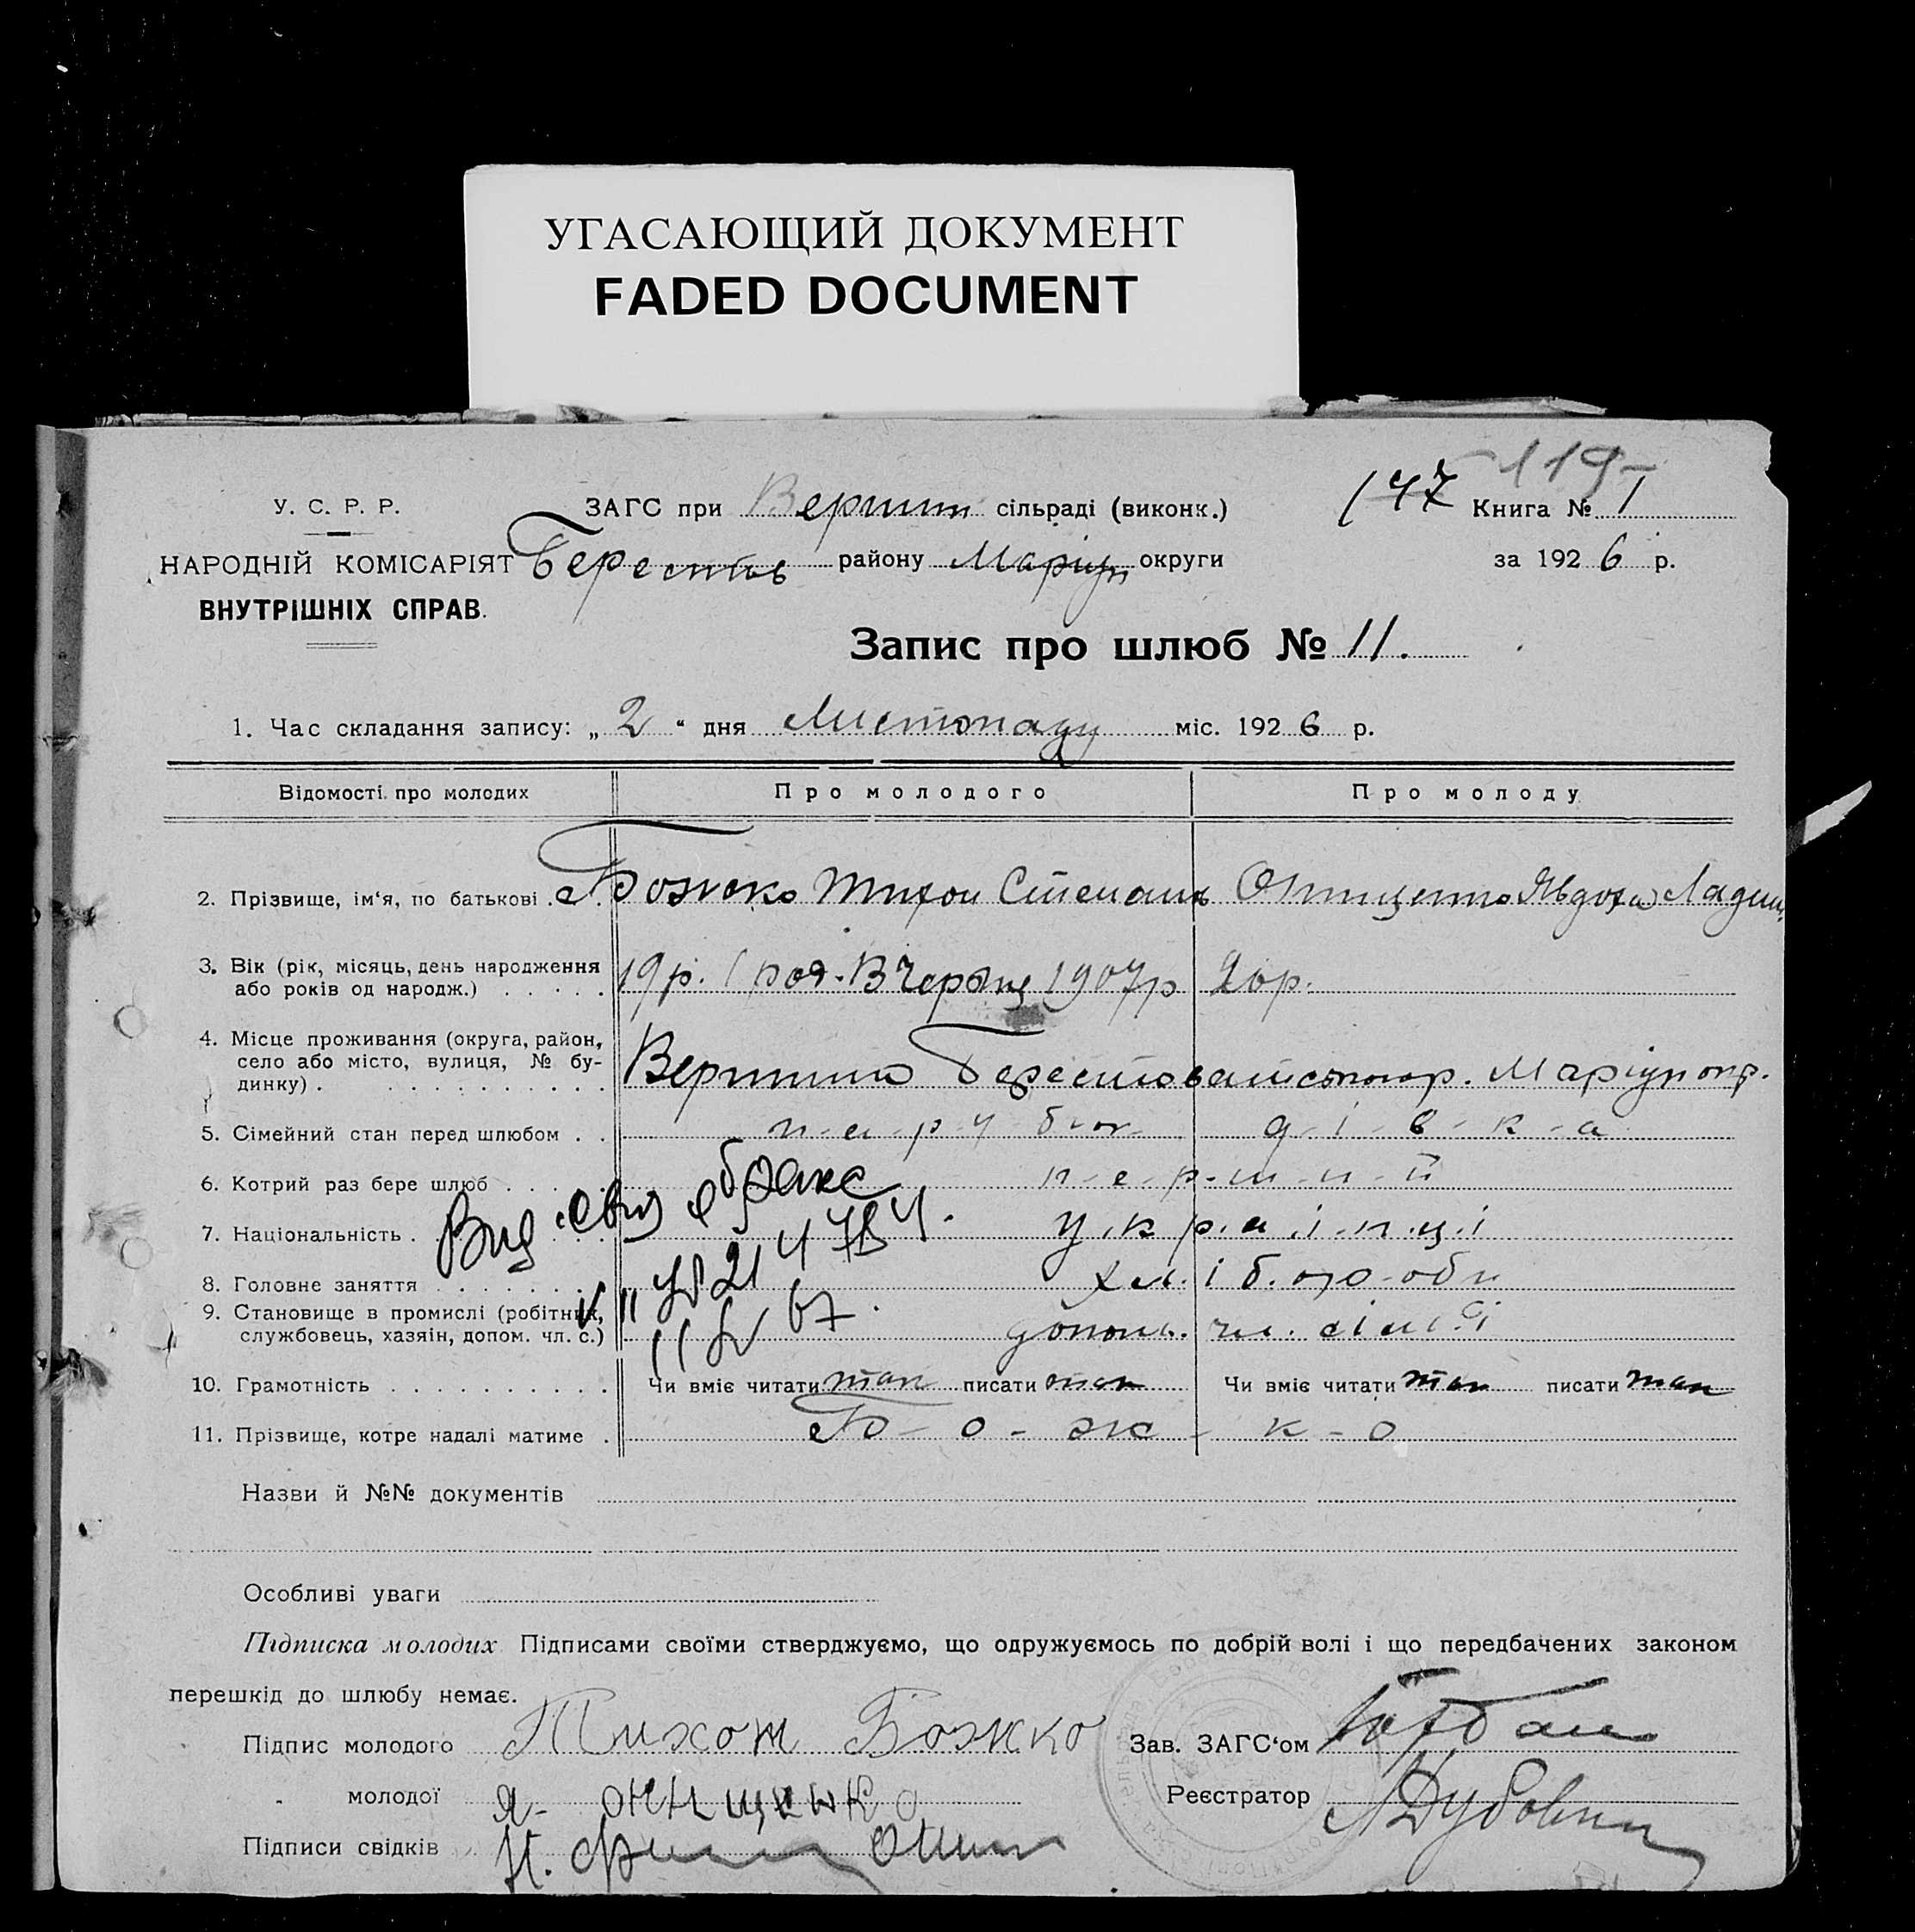 УГАСАЮЩИЙ ДОКУМЕНТ
FADED DOCUMENT
119
У. С. Р. Р. ЗАГС при Вершин сільраді (виконк.) 147 Книга № 1
НАРОДНІЙ КОМІСАРІЯТ Берестов району Маріуп округи за 1926 р.
ВНУТРІШНІХ СПРАВ.
Запис про шлюб № 11.
1. Час складання запису: „ 2 “ дня Листопаду міс. 1926 р.
Відомості про молодих Про молодого Про молоду
2. Прізвище, ім‘я, по батькові . . Божко Тихон Степанів Онищенко Явдоха
3. Вік (рік, місяць, день народження 19 р. 1907 р 20 р.
або років од народж.) . . . . .
4. Місце проживання (округа, район,
село або місто, вулиця, № бу- Вершино Маріуп окр.
динку) . . . . . . . . . .
5. Сімейний стан перед шлюбом . . п-а-р-у-б-ок д-і-в-к-а
6. Котрий раз бере шлюб . . . . . п-е-р-ш-и-й
7. Національність . . . . . у.к.р.а.ї.н.ц.і
8. Головне заняття . . . . . . . хл.і б.ор-оби
9. Становище в промислі (робітник,
службовець, хазяін, допом. чл. с.) допом. чл. сім'ї
Вид. свид о браке
11 67.
10. Грамотність . . . . . . . . . . Чи вміє читати так писати так Чи вміє читати так писати так
11. Прізвище, котре надалі матиме . Б-о-ж-к-о
Назви й №№ документів
Особливі уваги
Підписка молодих Підписами своїми стверджуємо, що одружуємось по добрій волі і що передбачених законом
перешкід до шлюбу немає.
Підпис молодого Тихон Божко Зав. ЗАГС‘ом
молодої Я- Онищенко Реєстратор
Підписи свідків